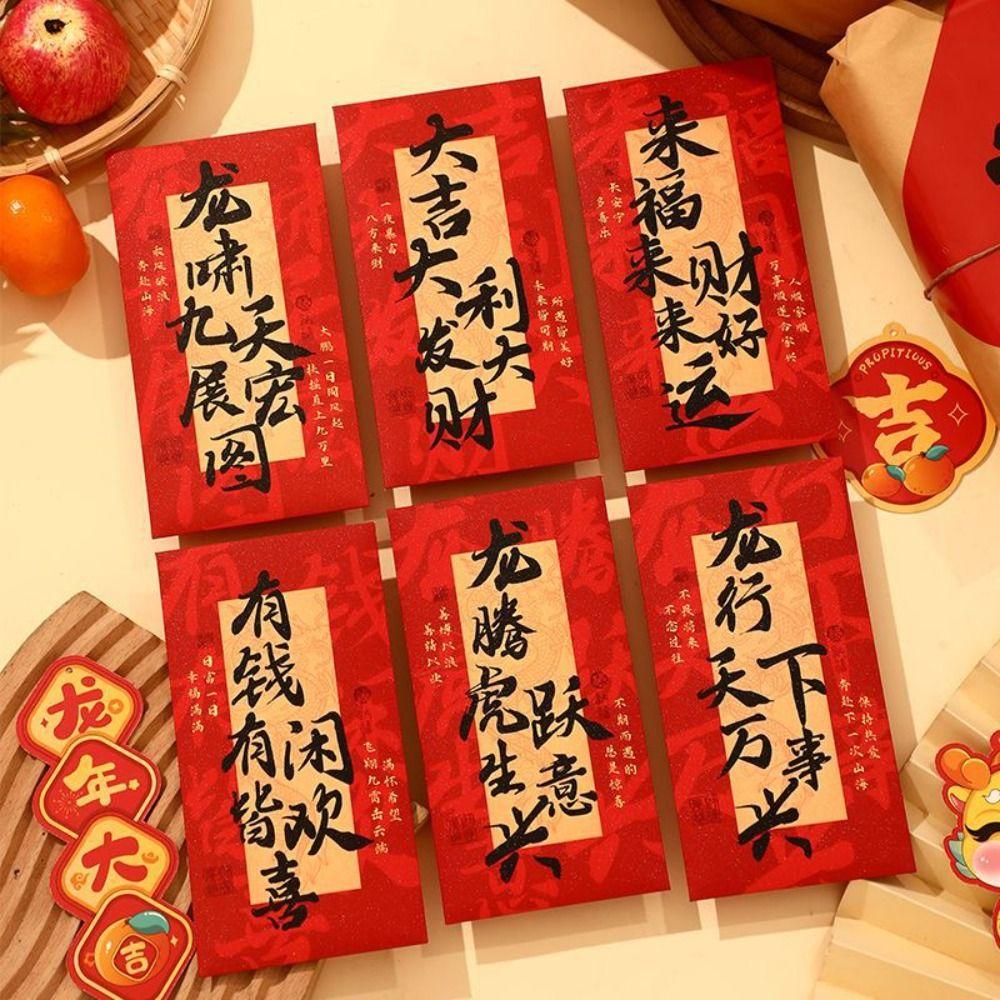 龙啸九天
展宏图
乘风破浪
奔赴山海
大鹏一日同风起
扶摇直上九万里
大吉大利
发大财
一夜暴富
八方来财
所遇皆美好
未来皆可期
来福来财
来好运
长安宁
多喜乐
人顺家顺
万事顺遂合家兴
PROPITIOUS
吉
有钱有闲
皆欢喜
日富一日
幸福满满
满怀希望
飞翔九霄击云端
龙腾虎跃
生意兴
不期而遇的
总是惊喜
龙行天下
万事兴
不畏将来
不念过往
保持热爱
奔赴下一次山海
龙
年
大
吉